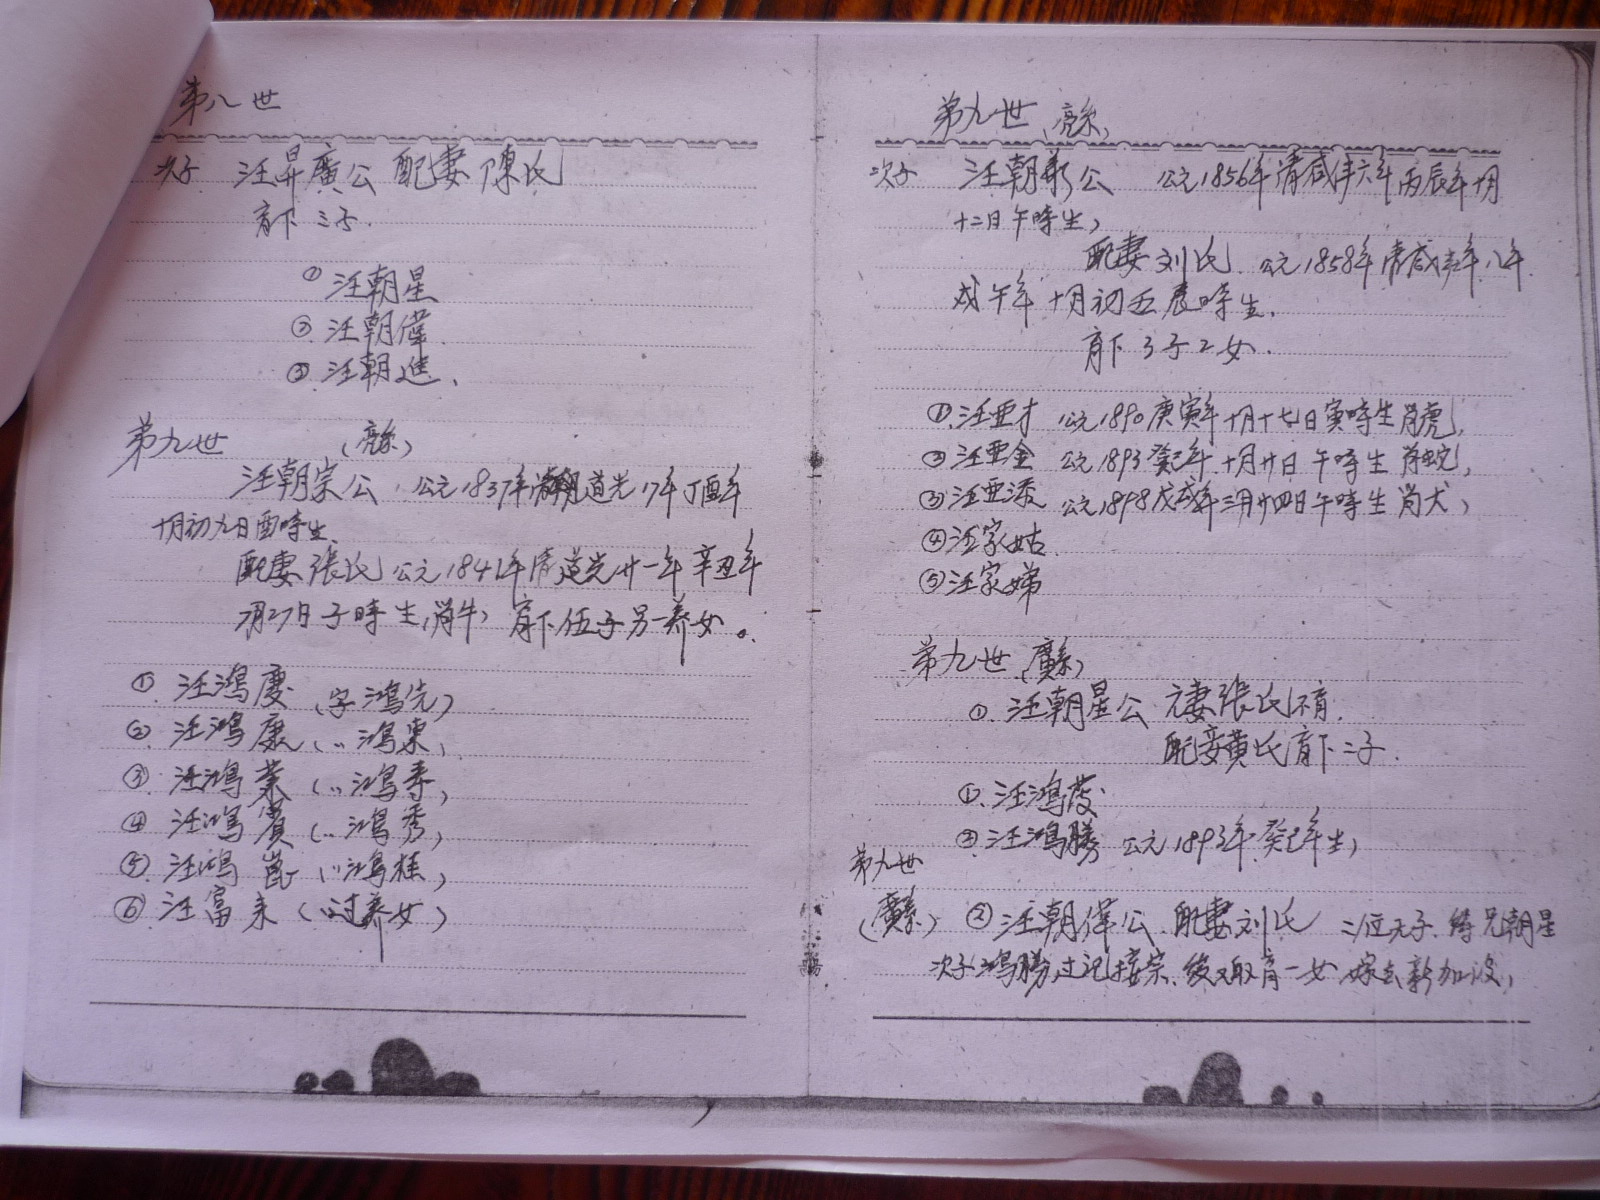 第八世
次子 汪昇廣公 配妻 陳氏
育下 三子.
① 汪朝星
② 汪朝偉
③ 汪朝進、
第九世 (亮系)
汪朝宗公 公元1837年清朝道光17年丁酉年
十月初九日酉時生、
配妻 張氏 公元1841年清道光廿一年 辛丑年
27日子時生,肖牛, 育下伍子另一养女。
① 汪鴻慶 (字鴻先)
② 汪鴻康 (〃鴻東)
③ 汪鴻業 (〃鴻壽)
④ 汪鴻賓 (〃鴻秀)
⑤ 汪鴻 (〃鴻桂)
⑥ 汪富 (〃过养女)
第九世 (亮系)
次子 汪朝新公 公元1856年清咸丰六年丙辰年十月
十二日午時生,
配妻刘氏 公元1858年清咸丰年八年
戊午年 十月初五辰時生.
育下3子2女.
① 汪亞才 公元1890庚寅年十月十七日寅時生肖虎,
② 汪亞金 公元1893癸巳年十月廿日午時生肖蛇,
③ 汪亞 公元1898戊戌年三月廿四日午時生肖犬,
④ 汪家姑.
⑤ 汪家娣
第九世 (廣系)
①. 汪朝星公 元妻張氏不育.
配妾黄氏育下二子.
①. 汪鴻
②. 汪鴻勝 公元1893年癸巳年生,
第九世
(廣系) ② 汪朝偉公 配妻刘氏 二位无子. 兄朝星
次子鴻勝过记接宗、後又取育一女 嫁去新加波,